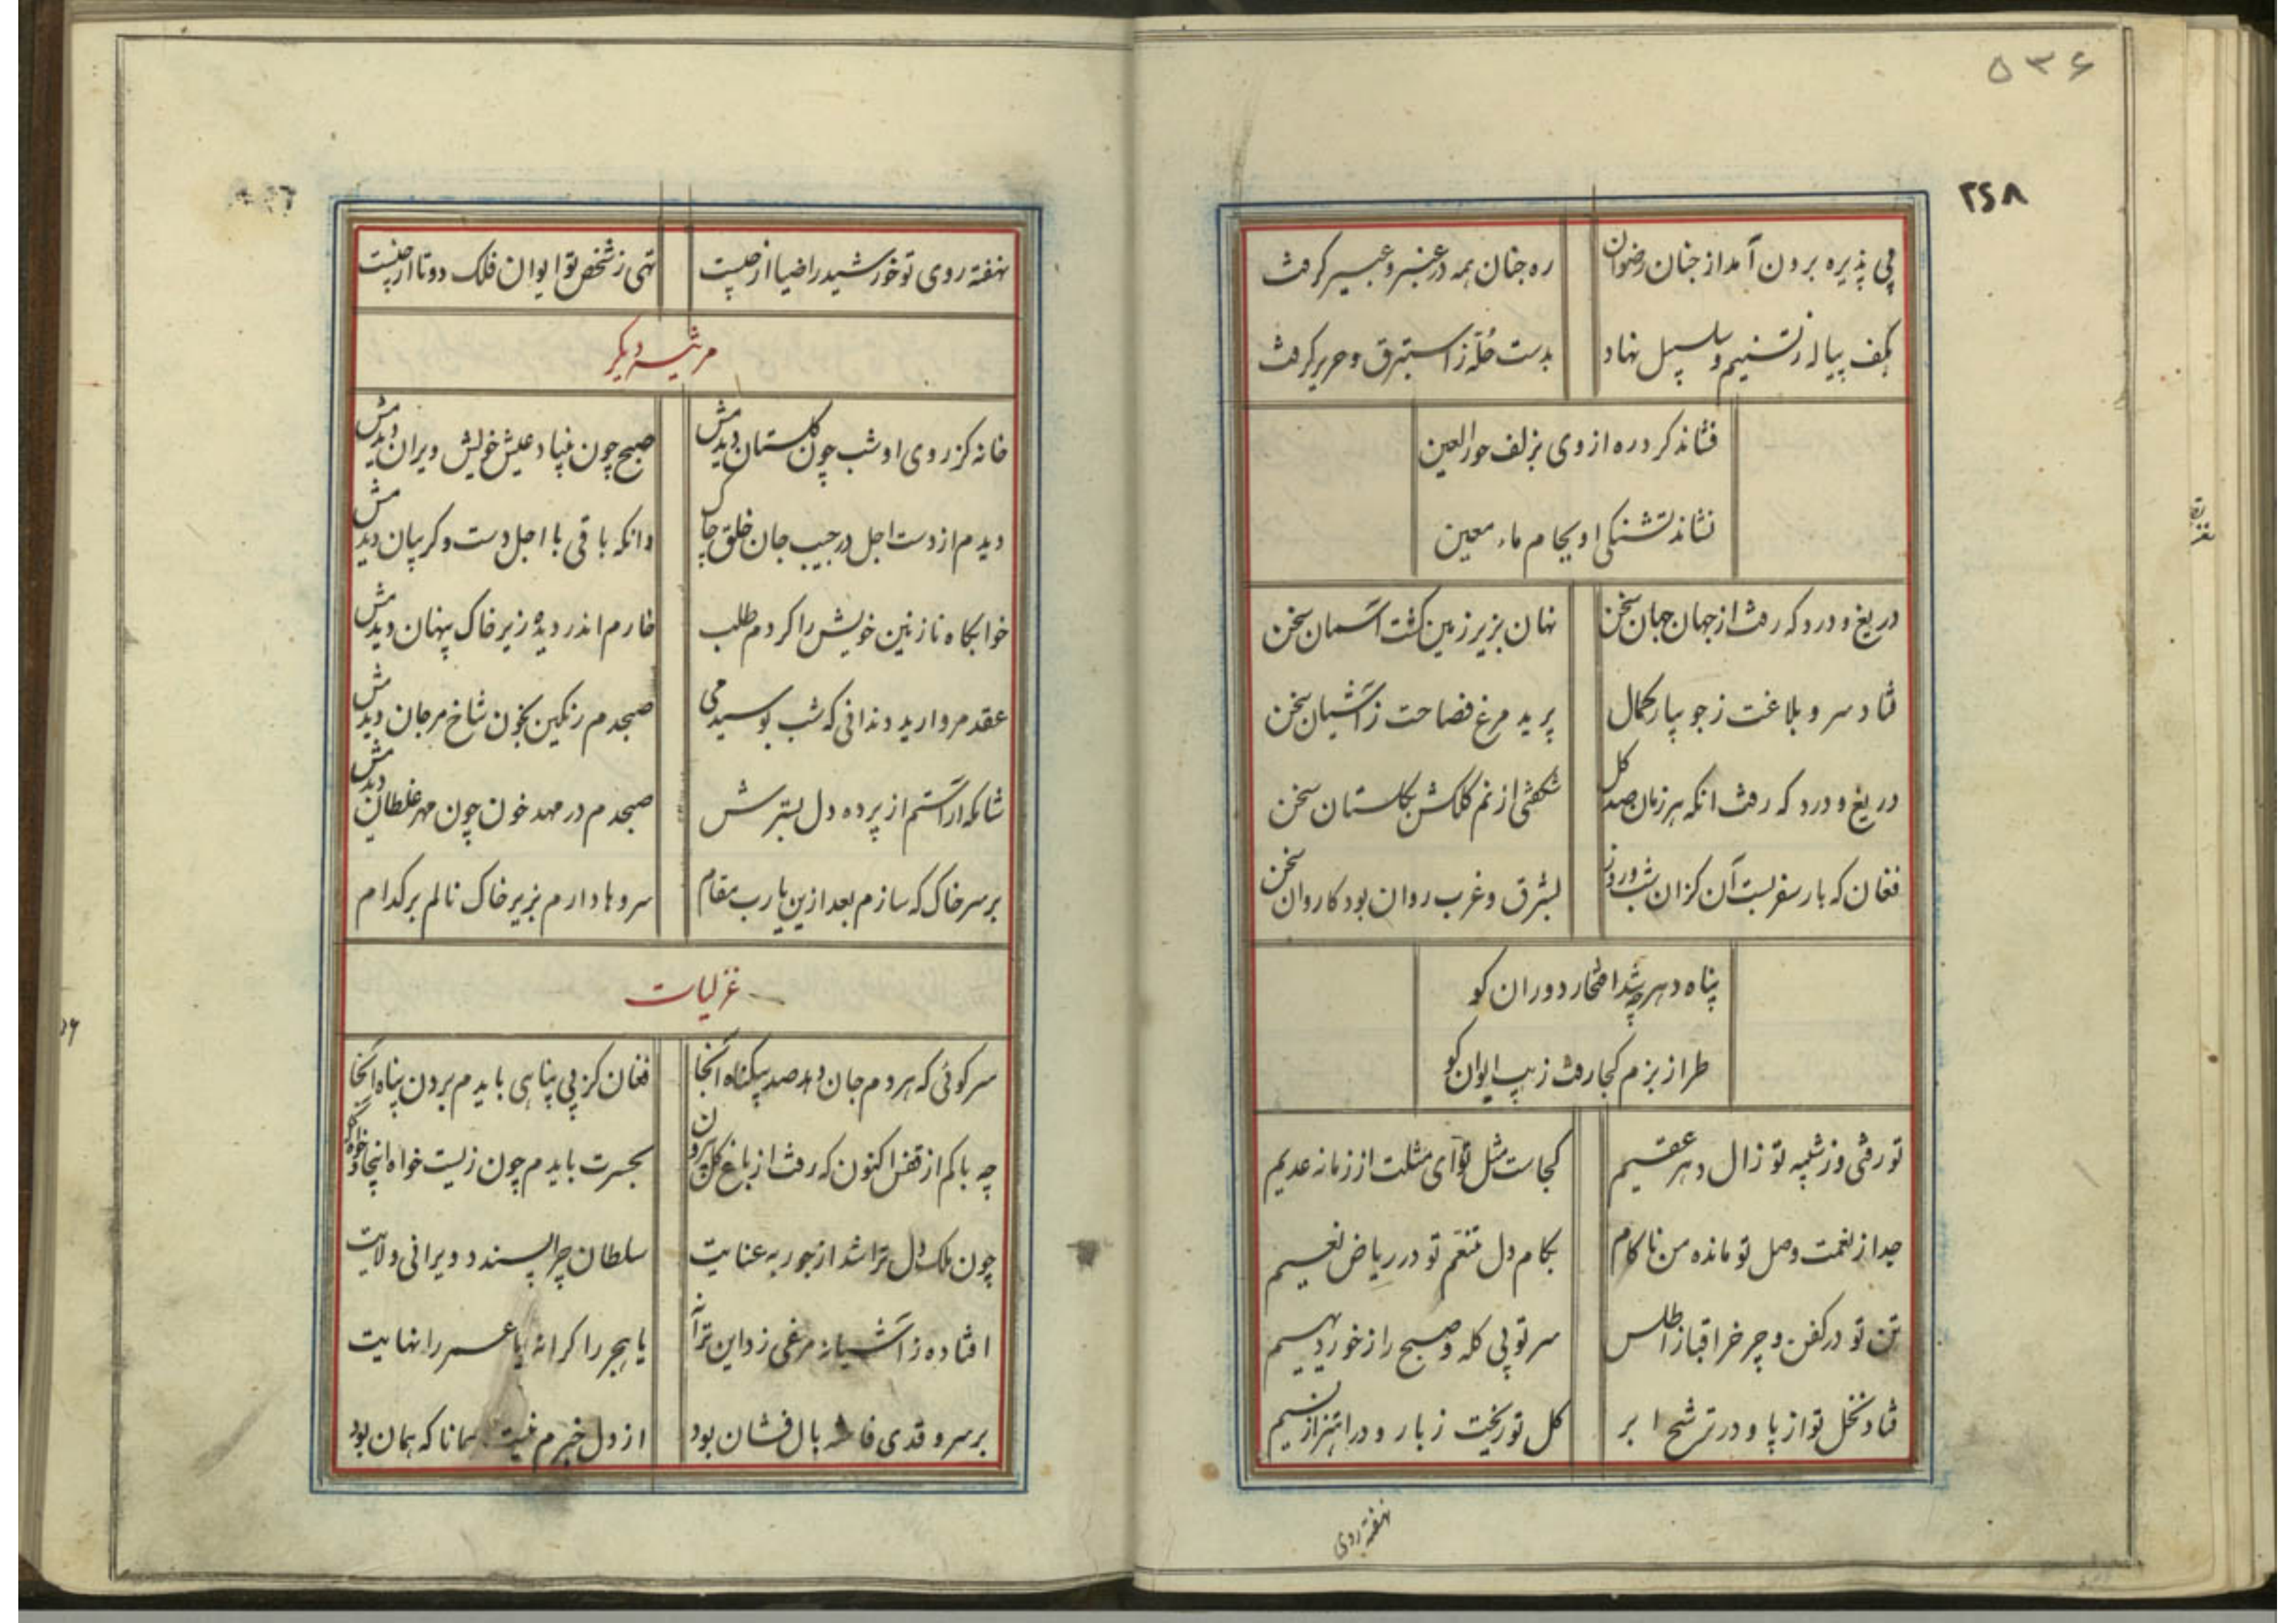 ۵۳۶
۲۶۸
پی پذیره برون آمد از جنان رضوان
ره جنان همه در عنبر و عبیر گرفت
بکف پیاله ز تسنیم و سلسبیل نهاد
بدست حُلّه ز استبرق و حریر گرفت
فشاند کرد ره از وی بزلف حورالعین
نشاند تشنکی او بجام ماء معین
دریغ و درد که رفت از جهان جهان سخن
نهان بزیر زمین کشت آسمان سخن
فتاد سرو بلاغت ز جویبار کمال
پرید مرغ فصاحت ز آشیان سخن
دریغ و درد که رفت انکه هر زمان صد کل
شکفتی از نم کلکش بکلستان سخن
فغان که بار سفر بست آن کزان شب و روز
بشرق و غرب روان بود کاروان سخن
پناه دهر چه شد افتخار دوران کو
طراز بزم کجا رفت زیب ایوان کو
تو رفتی وز شبیه تو زال دهر عقیم
کجاست مثل تو آی مثلت از زمانه عدیم
جدا ز نعمت وصل تو مانده من ناکام
بکام دل متنعّم تو در ریاض نعیم
تن تو در کفن و چرخ را قبا ز اطلس
سر تو بی کله و صبح را ز خور دیهیم
فتاد نخل تو از پا و در ترشح ابر
کل تو ریخت ز بار و در اهتزاز نسیم
نهفته روی
نهفته روی تو خورشید را ضیا از چیست
تهی ز شخص تو ایوان فلک دوتا از چیست
مرثیه دیکر
خانه کز روی او شب چون کلستان دیدمش
صبح چون بنیاد عیش خویش ویران دیدمش
دیدم از دست اجل در جیب جان خلق چاک
وانکه باقی با اجل دست و کریبان دیدمش
خوابکاه نازنین خویش را کردم طلب
خارم اندر دیده زیر خاک پنهان دیدمش
عقد مروارید دندانی که شب بوسیدمی
صبحدم رنکین بخون شاخ مرجان دیدمش
شانکه آراستم از پرده دل بسترش
صبحدم در مهد خون چون مهر غلطان دیدمش
بر سر خاک که سازم بعد ازین یارب مقام
سروها دارم بزیر خاک نالم بر کدام
غزلیات
سر کوئی که هر دم جان دهد صد بیکناه آنجا
فغان کز بی پناهی بایدم بردن پناه آنجا
چه باکم از قفس اکنون که رفت از باغ کل بیرون
بحسرت بایدم چون زیست خواه اینجا و خواه آنجا
چون ملک دل ترا شد از جور به عنایت
سلطان چرا پسندد ویرانی ولایت
افتاده ز آشیانه مرغی زد این ترانه
یا هجر را کرانه یا عمر را نهایت
بر سرو قدی فاخته بال فشان بود
از دل خبرم نیست همانا که همان بود